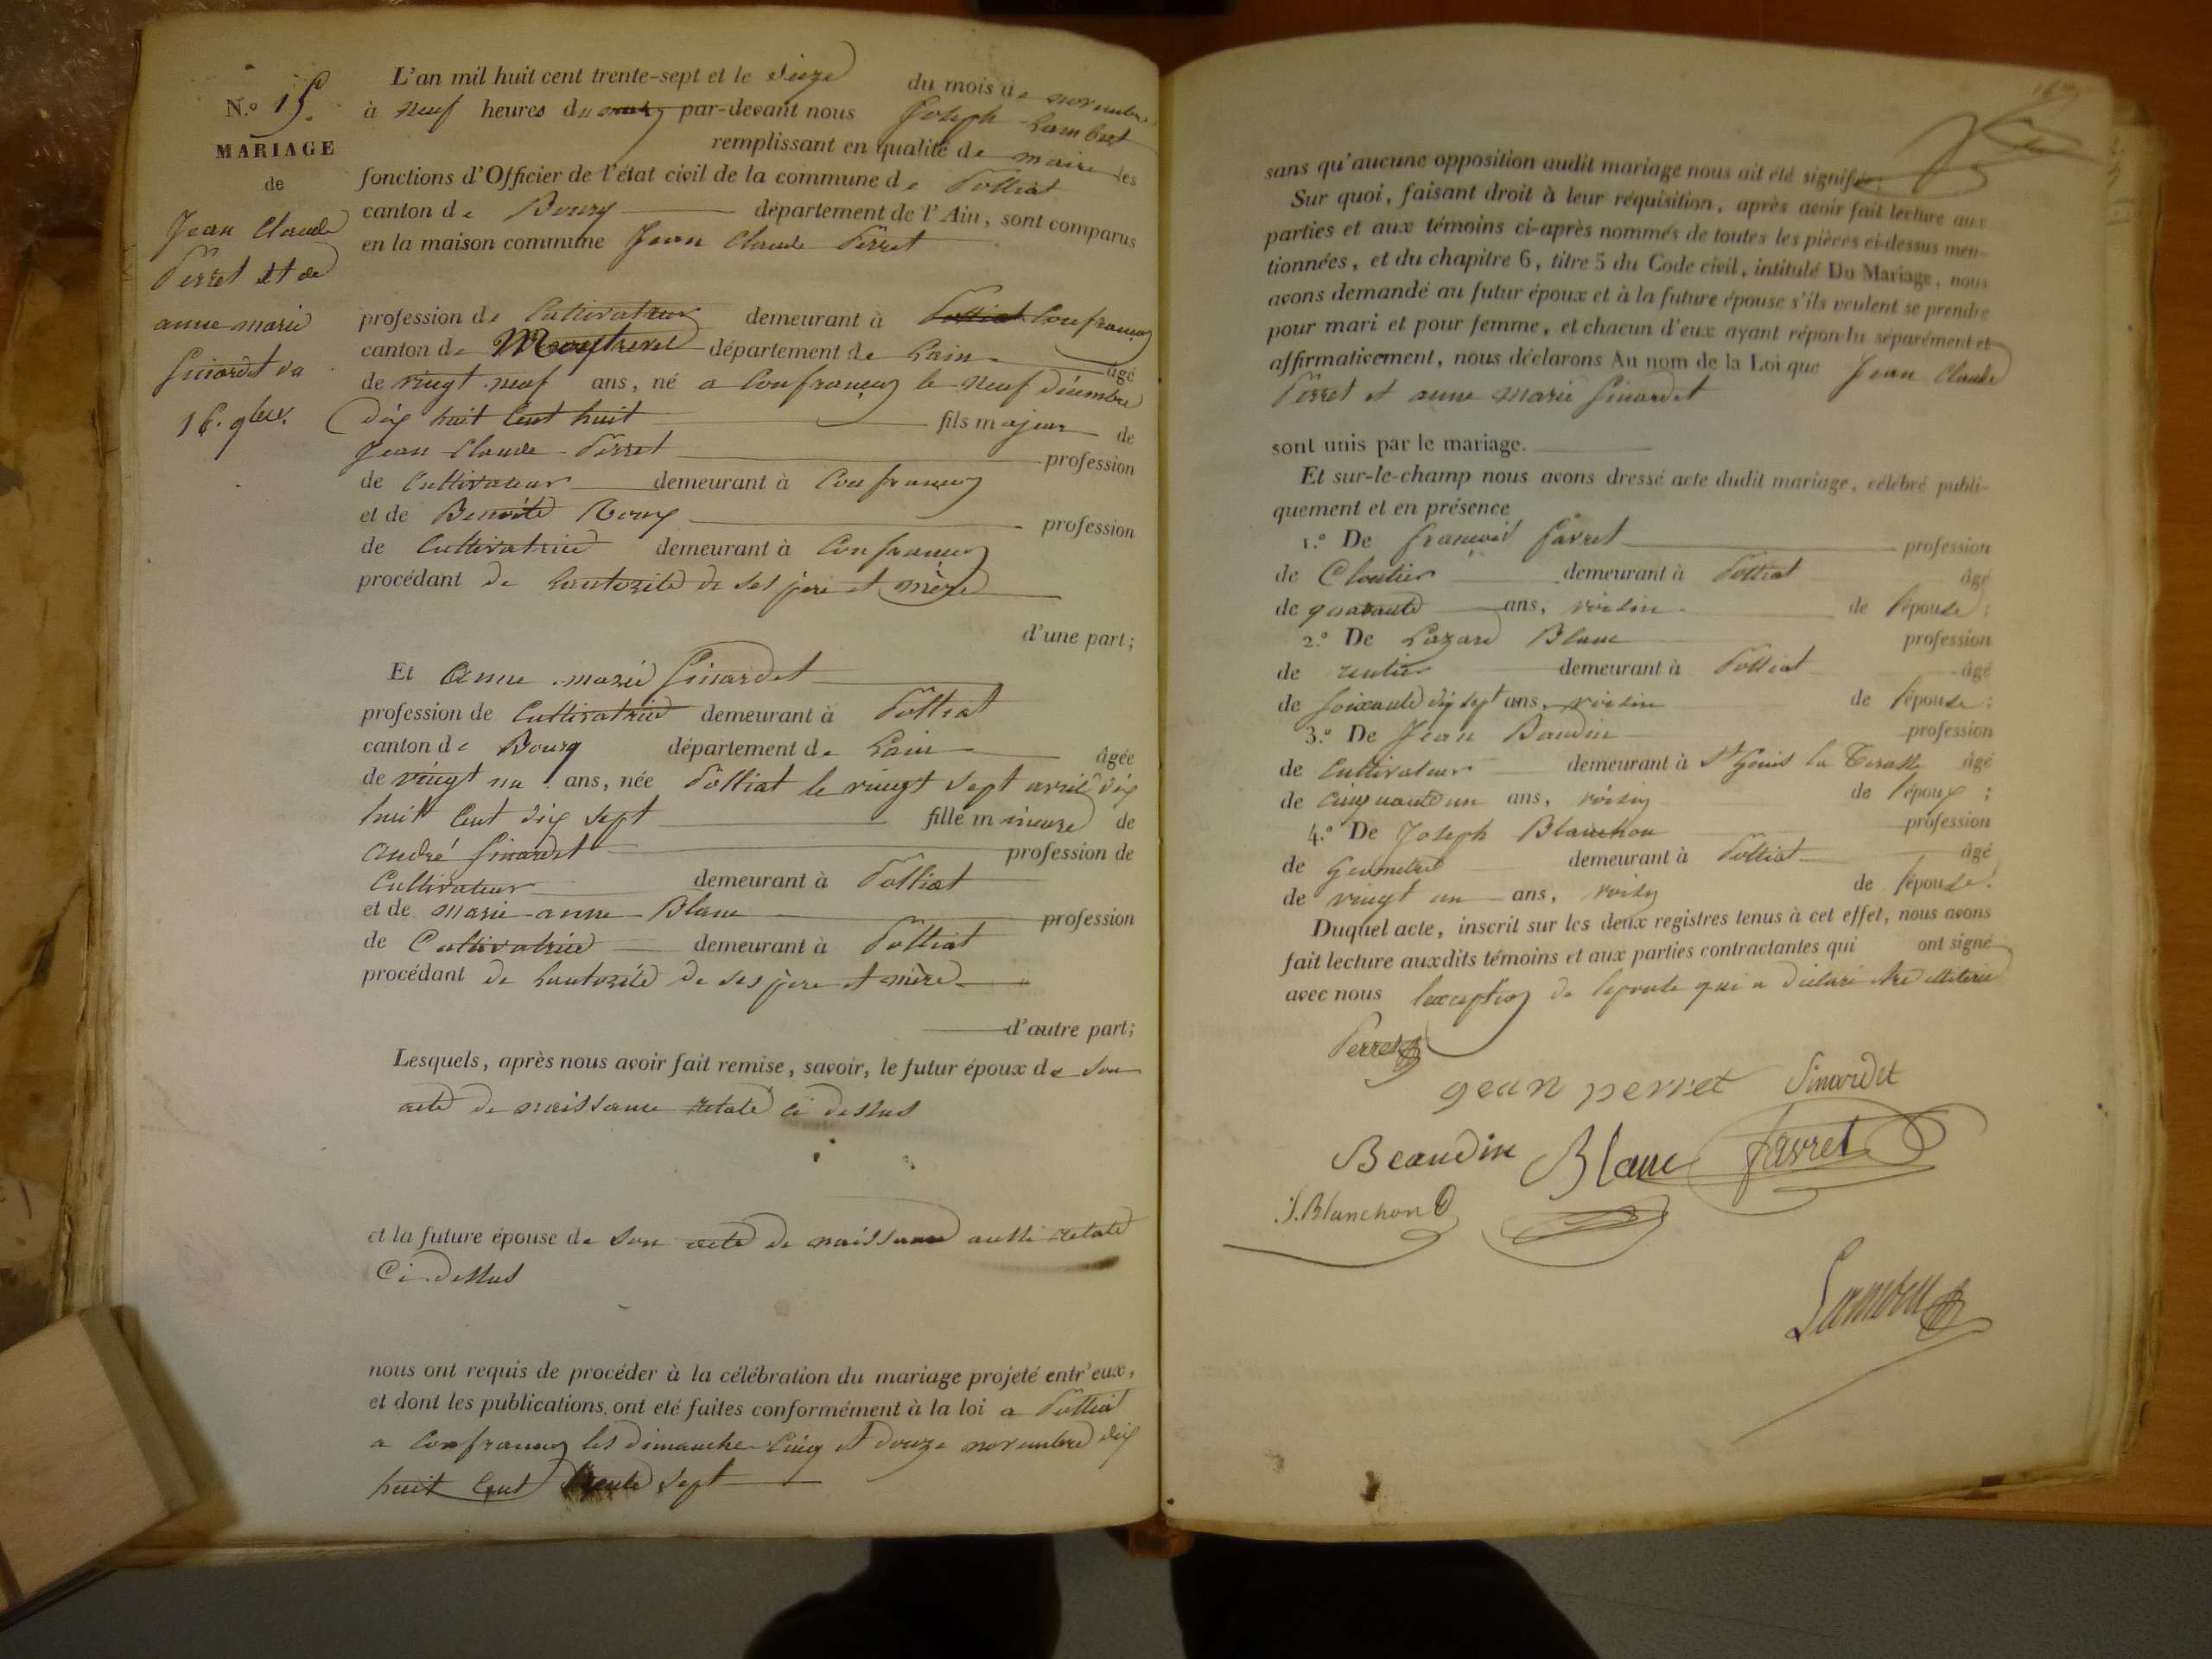 N.o 15.
MARIAGE
de
Jean Claude
Perret et de
anne marie
Sinardet du
16. 9bre.
L'an mil huit cent trente-sept et le seize du mois de novembre
à neuf heures du matin par-devant nous Joseph Lambert
remplissant en qualité de maire les
fonctions d'Officier de l'état civil de la commune de Polliat
canton de Bourg département de l'Ain, sont comparus
en la maison commune Jean Claude Perret
profession de Cultivateur demeurant à Polliat Confrançon
canton de Montrevel département de Lain âgé
de vingt neuf ans, né a Confrançon le neuf décembre
dix huit Cent huit fils majeur de
Jean Claude Perret profession
de Cultivateur demeurant à Confrançon
et de Benoite Roux profession
de Cultivatrice demeurant à Confrançon
procédant de lautorité de ses pere et mère
d'une part;
Et anne marie Sinardet
profession de Cultivatrice demeurant à Polliat
canton de Bourg département de Lain âgée
de vingt un ans, née Polliat le vingt sept avril dix
huit Cent dix sept fille mineure de
andré Sinardet profession de
Cultivateur demeurant à Polliat
et de marie anne Blanc profession
de Cultivatrice demeurant à Polliat
procédant de lautorité de ses pere et mère
d'autre part;
Lesquels, après nous avoir fait remise, savoir, le futur époux de son
acte de naissance relaté ci dessus
et la future épouse de son acte de naissance aussi relaté
Ci dessus
nous ont requis de procéder à la célébration du mariage projeté entr'eux,
et dont les publications ont eté faites conformément à la loi a Polliat
a Confrançon les dimanche Cinq et douze novembre dix
huit Cent trente sept
sans qu'aucune opposition audit mariage nous ait été signifiée.
Sur quoi, faisant droit à leur réquisition, après avoir fait lecture aux
parties et aux témoins ci-après nommés de toutes les pièces ci-dessus men-
tionnées, et du chapitre 6, titre 5 du Code civil, intitulé Du Mariage, nous
avons demandé au futur époux et à la future épouse s'ils veulent se prendre
pour mari et pour femme, et chacun d'eux ayant répondu séparément et
affirmativement, nous déclarons Au nom de la Loi que Jean Claude
Perret et anne marie Sinardet
sont unis par le mariage.
Et sur-le-champ nous avons dressé acte dudit mariage, célébré publi-
quement et en présence
1.o De françois favret profession
de Cloutier demeurant à Polliat âgé
de quarante ans, voisin de l'épouse;
2.o De Lazare Blanc profession
de rentier demeurant à Polliat âgé
de soixante dix sept ans, voisin de l'épouse;
3.o De Jean Baudin profession
de Cultivateur demeurant à St Genis âgé
de cinquante un ans, voisin de l'époux;
4.o De Joseph Blanchon profession
de Géometre demeurant à Polliat âgé
de vingt un ans, voisin de l'épouse.
Duquel acte, inscrit sur les deux registres tenus à cet effet, nous avons
fait lecture auxdits témoins et aux parties contractantes qui ont signé
avec nous lexception de lepouse qui a déclaré être illiterée
Perret
gean perret Sinardet
Beaudin Blanc favret
J. Blanchon
Lambert